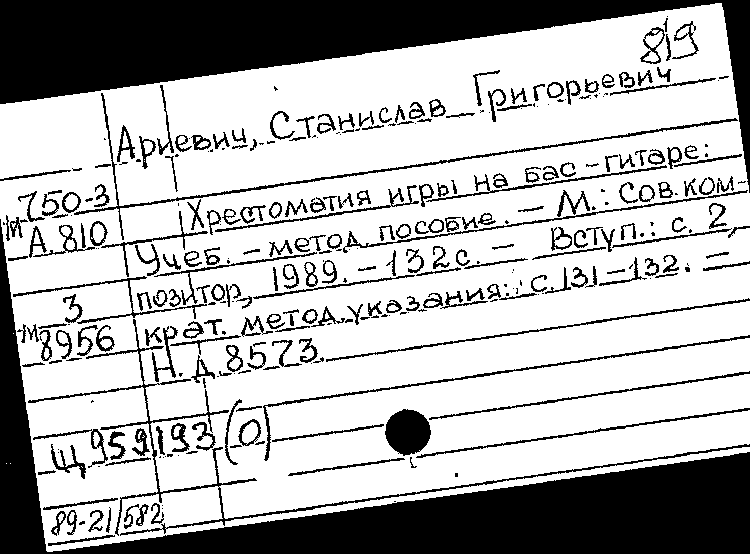 819
Ариевич, Станислав Григорьевич
750-3
М
А.810
Хрестоматия игры на бас-гитаре:
Учеб.-метод. пособие. — М.: Сов. ком-
позитор, 1989. – 132 с. — Вступ.: с. 2,
3
М 8956
крат. метод. указания: с. 131–132. —
Н. д. 8573.
Щ 959.193 (0)
89-21/582